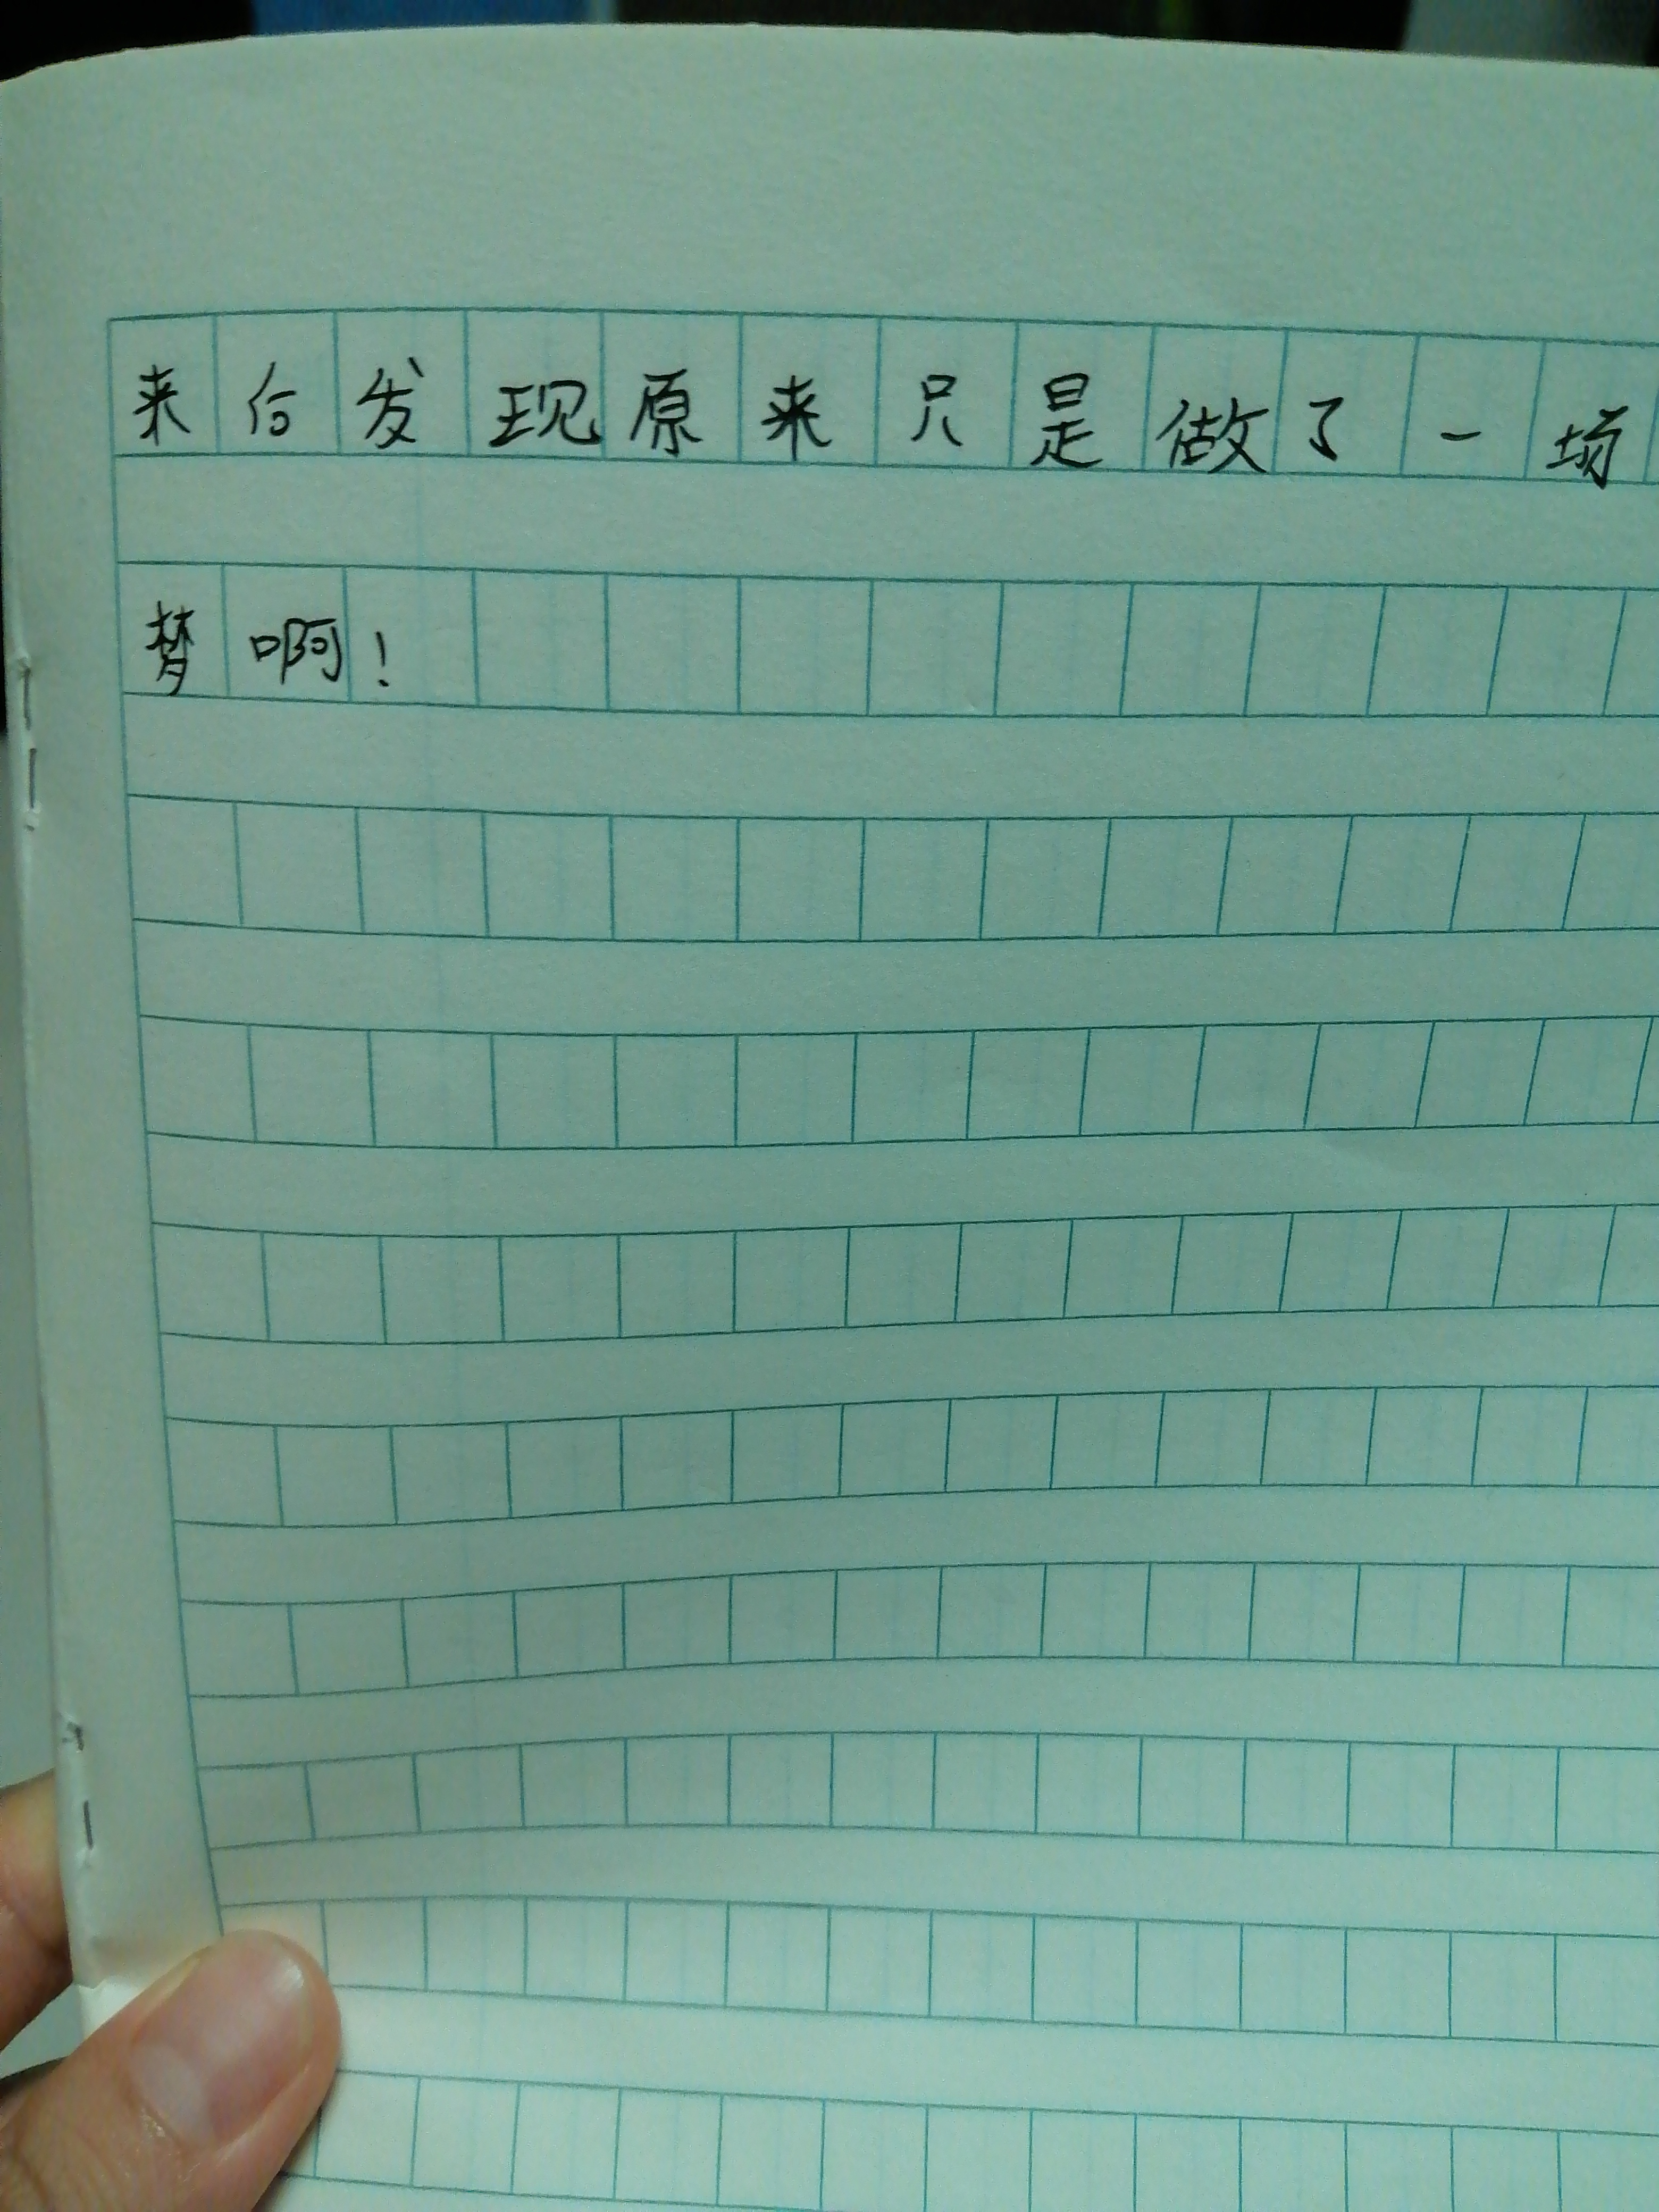 来后发现原来只是做了一场
梦啊！